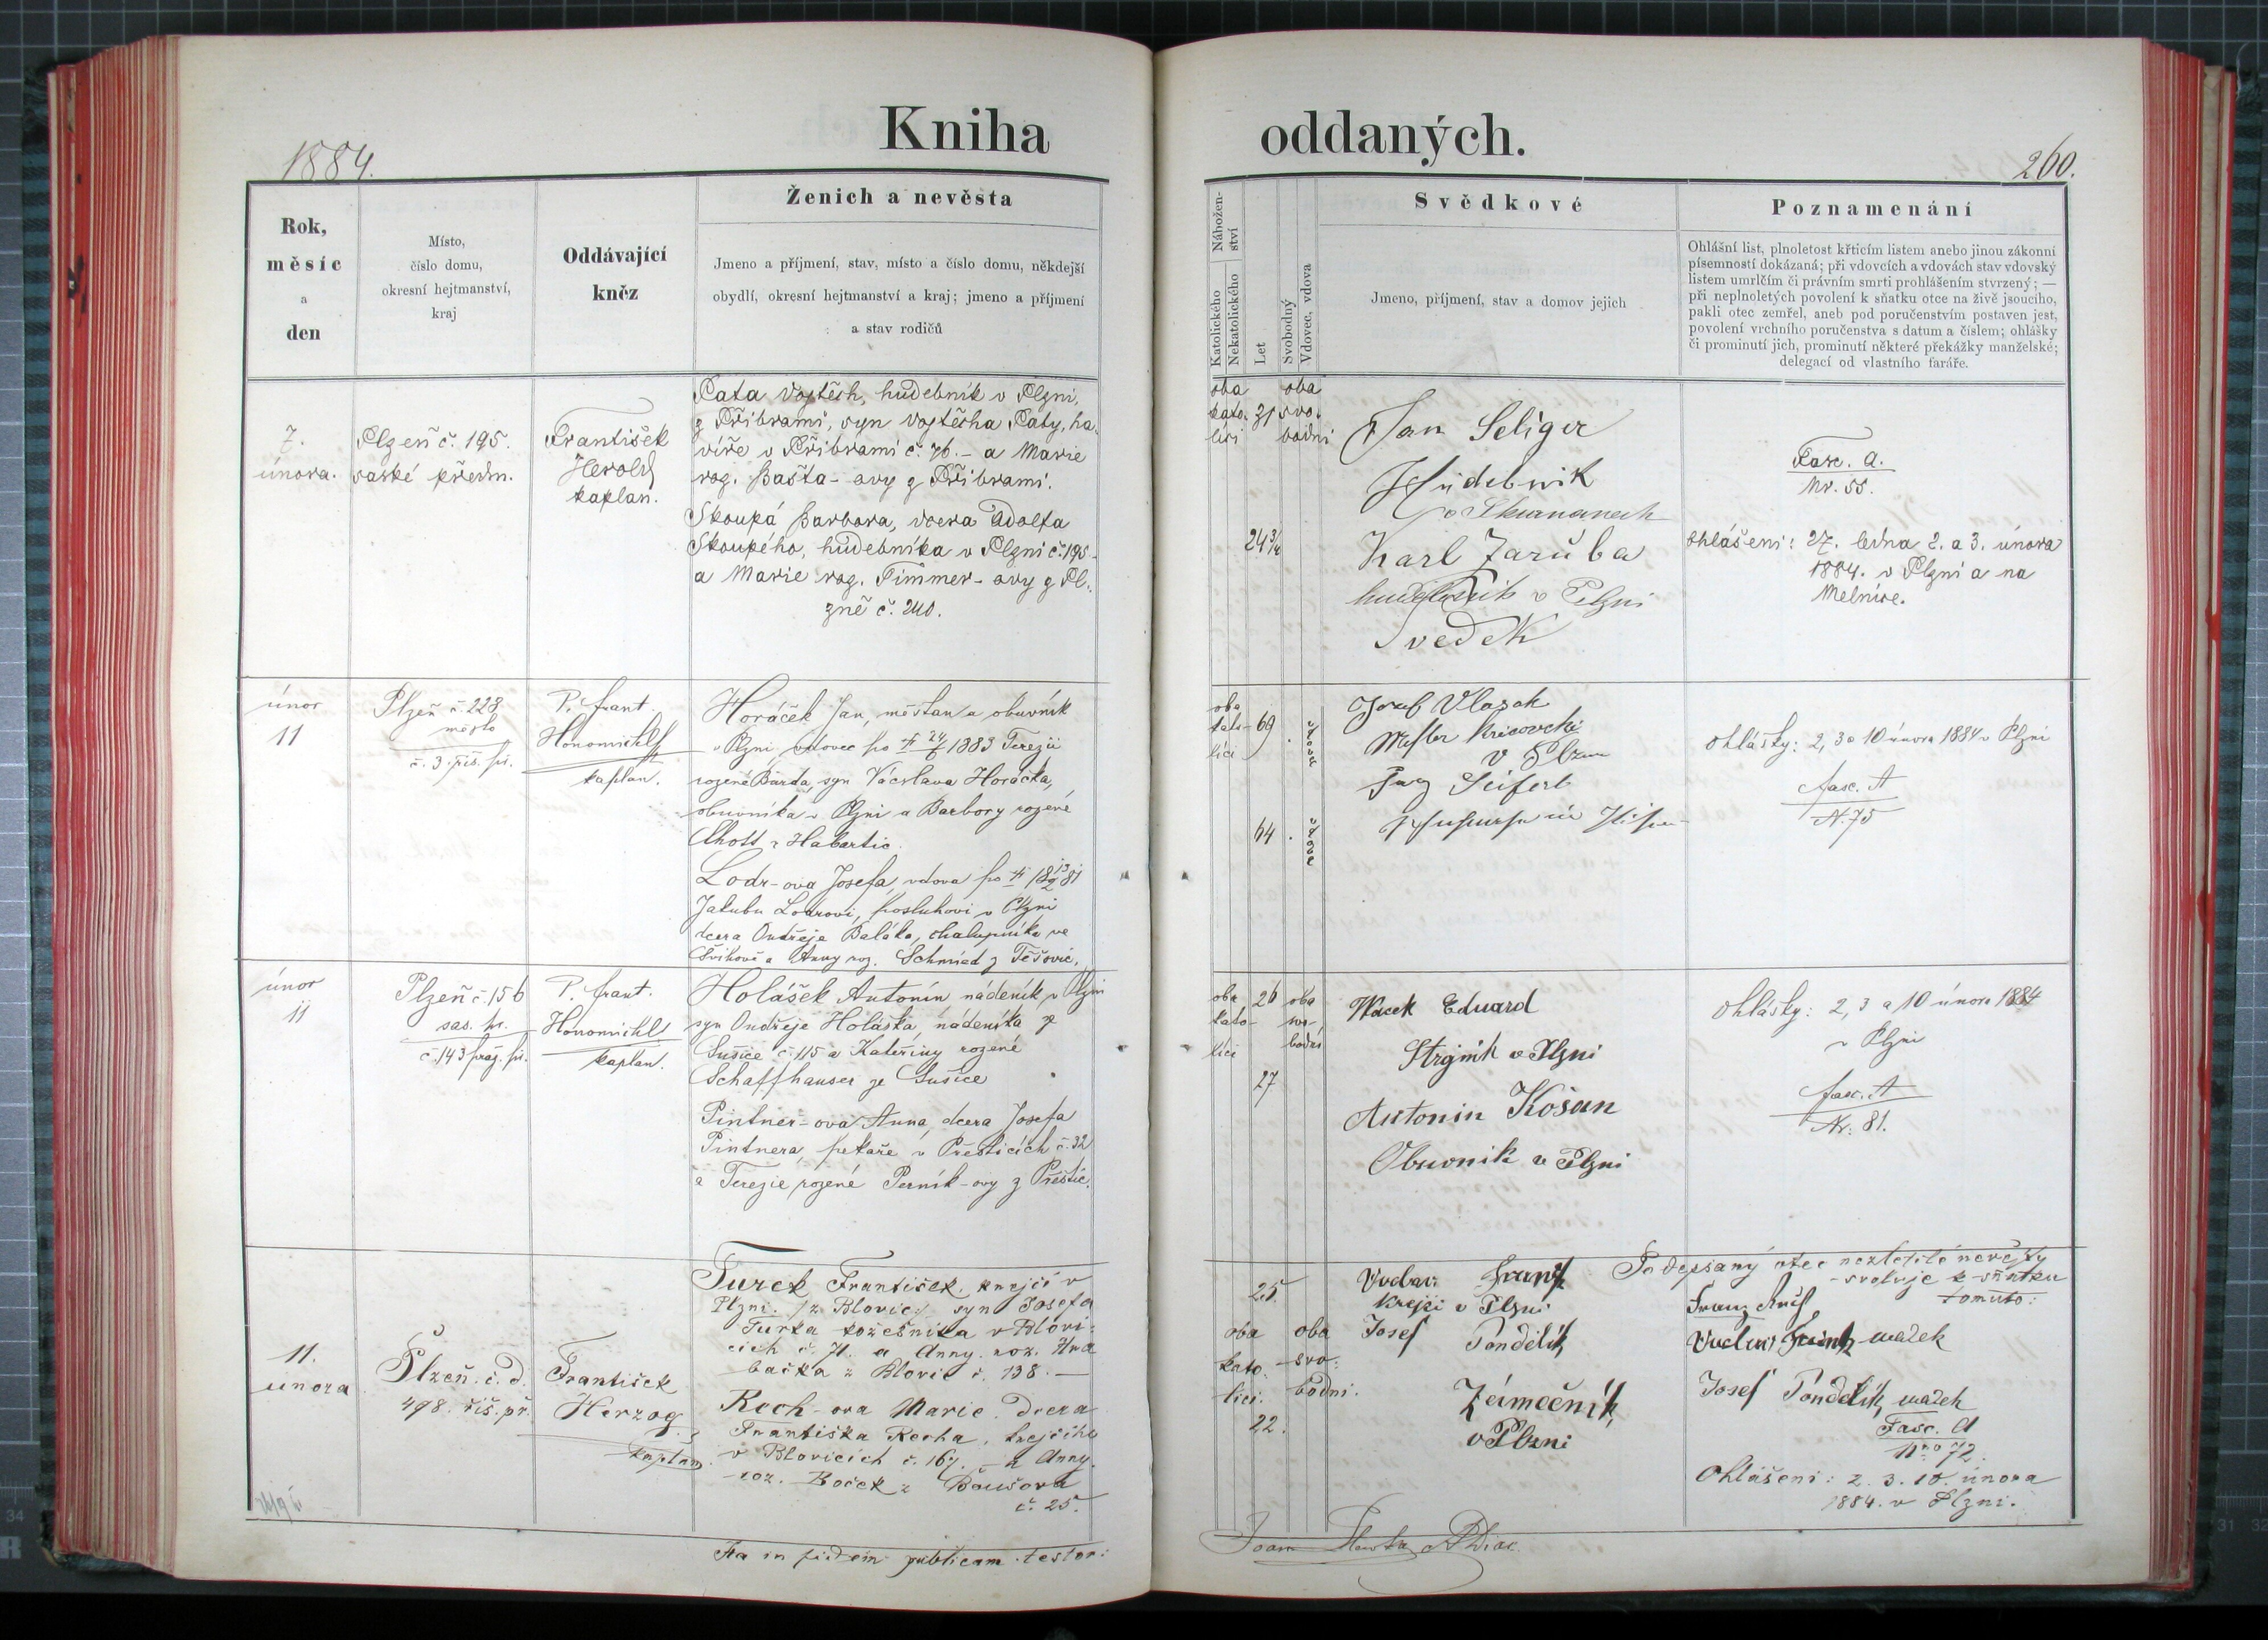 Kniha oddaných.
1884.
260.
Rok,
měsíc
a
den
Místo,
číslo domu,
okresní hejtmanství,
kraj
Oddávající
kněz
Ženich a nevěsta
Jmeno a příjmení, stav, místo a číslo domu, někdejší
obydlí, okresní hejtmanství a kraj; jmeno a příjmení
a stav rodičů
Nábožen-
ství
Katolického
Nekatolického
Let
Svobodný
Vdovec, vdova
Svědkové
Jmeno, příjmení, stav a domov jejich
Poznamenání
Ohlášní list, plnoletost křticím listem anebo jinou zákonní
písemností dokázaná; při vdovcích a vdovách stav vdovský
listem umrlčím či právním smrti prohlášením stvrzený; —
při neplnoletých povolení k sňatku otce na živě jsoucího,
pakli otec zemřel, aneb pod poručenstvím postaven jest,
povolení vrchního poručenstva s datum a číslem; ohlášky
či prominutí jich, prominutí některé překážky manželské;
delegací od vlastního faráře.
7.
února.
Plzeň č. 195.
saské předm.
František
Herold
kaplan.
Pata Vojtěch, hudebník v Plzni,
z Příbrami, syn Vojtěcha Paty, ha-
víře v Příbrami č. 76. – a Marie
roz. Bašta-ovy z Příbrami.
Skoupá Barbora, dcera Adolfa
Skoupého, hudebníka v Plzni č. 195 -
a Marie roz. Timmer-ovy z Pl-
zně č. 240.
oba
kato-
líci
31
24 3/4
oba
svo-
bodni
Jan Seliger
Hudebnik
Karl Zaruba
hudebnik v Plzni
Svedek
Fasc. A.
Nr. 55.
Ohlášení: 27. ledna 2. a 3. února
1884. v Plzni a na
Mělníce.
únor
11
Plzeň č 228
město
č. 3. říš. př.
P. Frant.
Honomichl
kaplan.
Horáček Jan, měšťan a obuvník
v Plzni, vdovec po † 24/7 1883 Terezii
rozené Burda, syn Václava Horáčka,
obuvníka v Plzni a Barbory rozené
Chott z Habartic.
Lodr-ova Josefa, vdova po † 18 13/2 81
Jakubu Lodrovi, posluhovi v Plzni
dcera Ondřeje Baláka, chalupníka ve
Švihově a Anny roz. Schmied z Těšovic.
oba
kato-
líci
69
64
vdovec
vdova
Josef Vlasak
v Plzni
Seifert
Ohlášky: 2, 3 a 10 února 1884 v Plzni
fasc. A
N. 75
únor
11
Plzeň č. 156
sas. př.
č. 143 praž. př.
P. Frant.
Honomichl
kaplan.
Holášek Antonín nádeník v Plzni
syn Ondřeje Holáška, nádeníka z
Sušice č. 115 a Kateřiny rozené
Schaffhauser ze Sušice
Pintner-ova Anna, dcera Josefa
Pintnera, pekaře v Přesticích č. 32
a Terezie rozené Perník-ovy z Přeštic.
oba
kato-
líci
26
27
oba
svo-
bodni
Wacek Eduard
Strojnik v Plzni
Antonin Košan
Obuvnik v Plzni
Ohlášky: 2, 3 a 10 února 1884
v Plzni
fasc. A
Nr. 81.
11.
února
Plzeň. č. d.
498. říš. př.
František
Herzog
kaplan.
Turek František, krejčí v
Plzni. /: z Blovic :/ syn Josefa
Turka kožešníka v Blovi-
cích č. 71. a Anny roz. Hra
bačka z Blovic č. 138. —
Roch-ova Marie. dcera
Františka Rocha, krejčího
v Blovicích č. 167. – a Anny.
roz. Boček z
č. 25.
25.
oba
kato-
líci.
22.
oba
svo-
bodni.
Krejčí v Plzni
Josef Pondělík
Zámečník
v Plzni
Podepsaný otec nezletilé nevěsty
svoluje k sňatku
tomuto:
Josef Pondělík, svědek
Fasc. A
Nro 72.
Ohlášení: 2. 3. 10. února
1884. v Plzni.
Ita in fidem publicam testor: